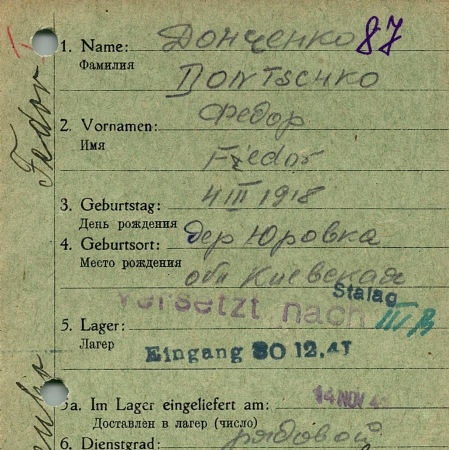 1. Name: Донченко 87
Фамилия
Dontschko
2. Vornamen: Федор
Имя
Fiedor
3. Geburtstag: 4 III 1918
День рождения
4. Geburtsort: дер Юровка
Место рождения
обл Киевская
versetzt nach Stalag III B
5. Lager:
Лагерь
Eingang 30 12. 41
5a. Im Lager eingeliefert am: 14 NOV 4
Доставлен в лагерь (число)
6. Dienstgrad: рядовой
Fedor